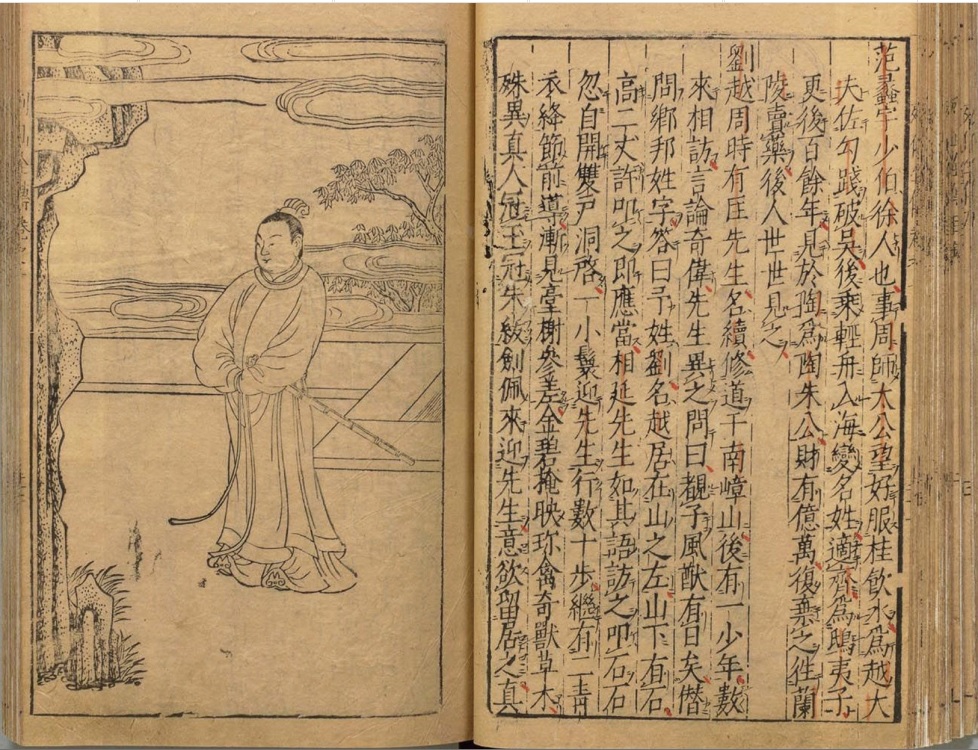 范蠡字少伯徐人也事周師太公望好服桂飲水爲越大
夫佐勾踐破吳後乘輕舟入海變名姓適齊爲鴟夷子
更後百餘年見於陶爲陶朱公財有億萬復棄之往蘭
陵賣藥後人世世見之
劉越周時有匡先生名續修道于南嶂山後有一少年數
來相訪言論奇偉先生異之問曰覩子風猷有日矣僭
問鄉邦姓字答曰予姓劉名越居在山之左山下有石
高二丈許叩之即應當相延先生如其語訪之叩石石
忽自開雙戶洞啓一小鬟迎先生行數十步繼有二青
衣絳節前導漸見臺榭參差金碧掩映珍禽奇獸草木
殊異真人冠玉冠朱紱劍佩來迎先生意欲留居之真